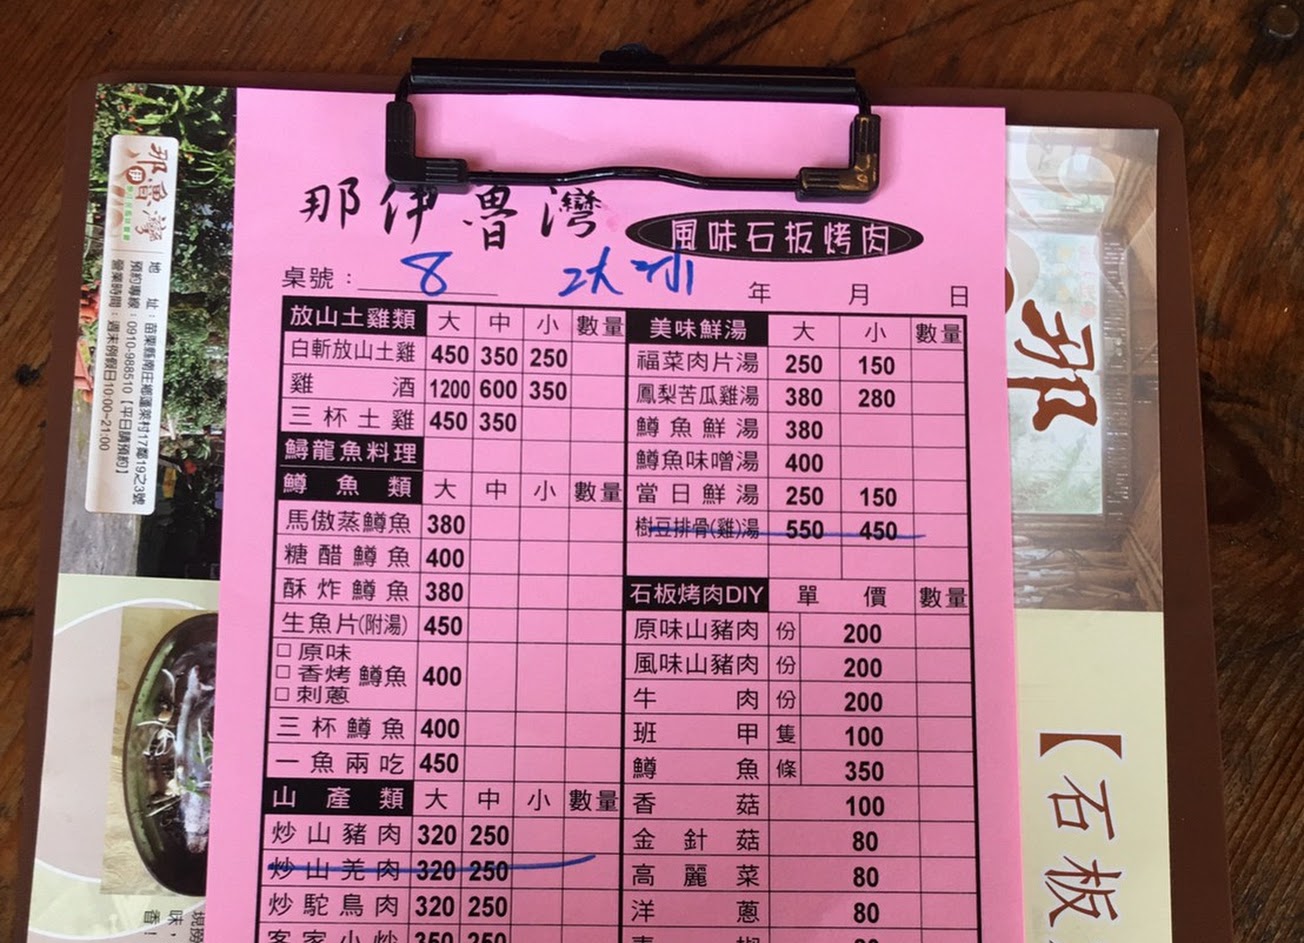 那伊魯灣 風味石板烤肉
桌號：8 2大2小 年 月 日
放山土雞類 大 中 小 數量
白斬放山土雞 450 350 250
雞酒 1200 600 350
三杯土雞 450 350
鱘龍魚料理
鱒魚類 大 中 小 數量
馬傲蒸鱒魚 380
糖醋鱒魚 400
酥炸鱒魚 380
生魚片(附湯) 450
□原味
□香烤鱒魚 400
□刺蔥
三杯鱒魚 400
一魚兩吃 450
山產類 大 中 小 數量
炒山豬肉 320 250
炒山羌肉 320 250
炒駝鳥肉 320 250
客家小炒 350 250
美味鮮湯 大 小 數量
福菜肉片湯 250 150
鳳梨苦瓜雞湯 380 280
鱒魚鮮湯 380
鱒魚味噌湯 400
當日鮮湯 250 150
樹豆排骨(雞)湯 550 450
石板烤肉DIY 單價 數量
原味山豬肉 份 200
風味山豬肉 份 200
牛肉 份 200
班甲 隻 100
鱒魚 條 350
香菇 100
金針菇 80
高麗菜 80
洋蔥 80
那伊魯灣
地址：苗栗縣南庄鄉蓬萊村17鄰19之3號
預約專線：0910-988510【平日請預約】
營業時間：週末例假日10:00~21:00
那
【石板
味，
香！